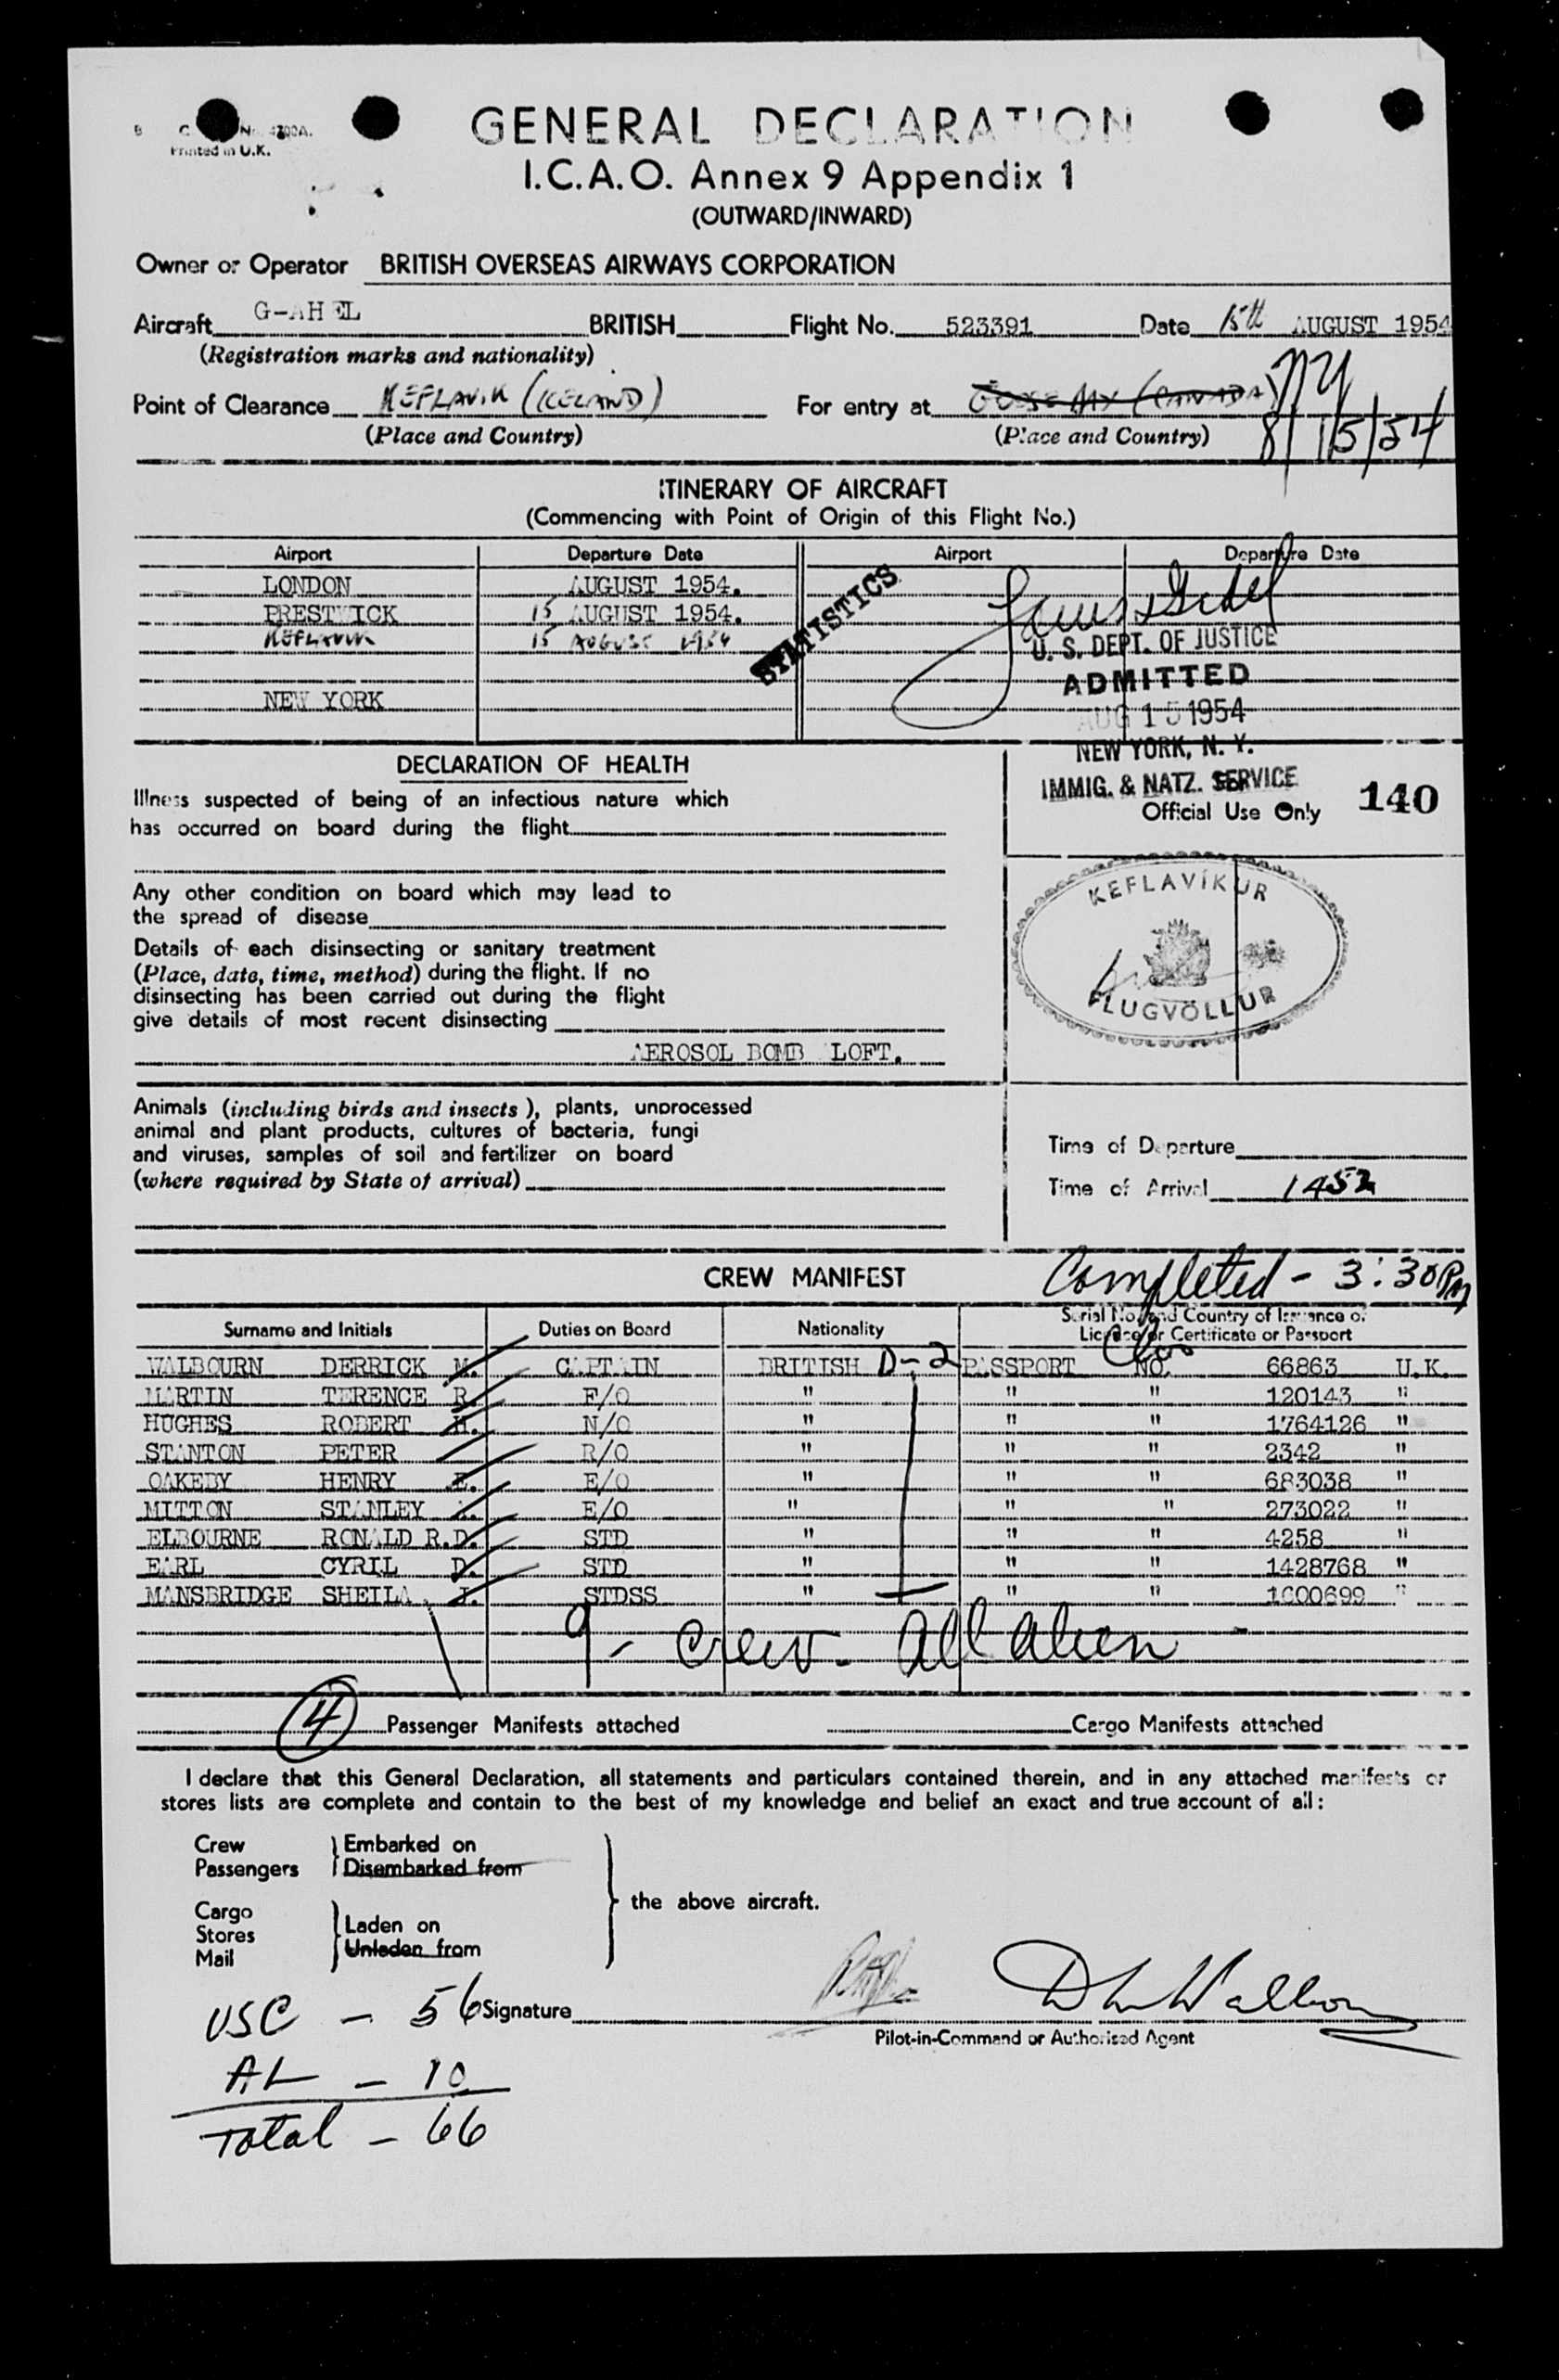 Printed in U.K.
GENERAL DECLARATION
I.C.A.O. Annex 9 Appendix 1
(OUTWARD/INWARD)
Owner or Operator BRITISH OVERSEAS AIRWAYS CORPORATION
Aircraft G-AHEL BRITISH Flight No. 523391 Date 15th AUGUST 1954
(Registration marks and nationality)
Point of Clearance KEFLAVIK (ICELAND) For entry at GOOSE BAY (CANADA) NY
(Place and Country) (Place and Country) 8/15/54
ITINERARY OF AIRCRAFT
(Commencing with Point of Origin of this Flight No.)
Airport Departure Date Airport Departure Date
LONDON AUGUST 1954.
PRESTWICK 15 AUGUST 1954.
KEFLAVIK 15 AUGUST 1954
NEW YORK
STATISTICS
U. S. DEPT. OF JUSTICE
ADMITTED
AUG 15 1954
NEW YORK, N. Y.
IMMIG. & NATZ. SERVICE
Official Use Only 140
DECLARATION OF HEALTH
Illness suspected of being of an infectious nature which
has occurred on board during the flight
Any other condition on board which may lead to
the spread of disease
Details of each disinsecting or sanitary treatment
(Place, date, time, method) during the flight. If no
disinsecting has been carried out during the flight
give details of most recent disinsecting
AEROSOL BOMB LOFT.
KEFLAVÍKUR
FLUGVÖLLUR
Animals (including birds and insects), plants, unprocessed
animal and plant products, cultures of bacteria, fungi
and viruses, samples of soil and fertilizer on board
(where required by State of arrival)
Time of Departure
Time of Arrival 1452
CREW MANIFEST Completed - 3:30 PM
Surname and Initials Duties on Board Nationality Serial No. and Country of Issuance of
Licence or Certificate or Passport
WALBOURN DERRICK M. CAPTAIN BRITISH D-2 PASSPORT NO. 66863 U.K.
MARTIN TERENCE R. F/O " " " 120143 "
HUGHES ROBERT H. N/O " " " 1764126 "
STANTON PETER R/O " " " 2342 "
OAKEBY HENRY E. E/O " " " 683038 "
MITTON STANLEY A. E/O " " " 273022 "
ELBOURNE RONALD R.D. STD " " " 4258 "
EARL CYRIL D. STD " " " 1428768 "
MANSBRIDGE SHEILA J. STDSS " " " 1600699 "
9 - Crew - All Alien
4 Passenger Manifests attached Cargo Manifests attached
I declare that this General Declaration, all statements and particulars contained therein, and in any attached manifests or
stores lists are complete and contain to the best of my knowledge and belief an exact and true account of all:
Crew Embarked on
Passengers Disembarked from
the above aircraft.
Cargo
Stores Laden on
Mail Unladen from
USC - 56 Signature
Pilot-in-Command or Authorised Agent
AL - 10
Total - 66